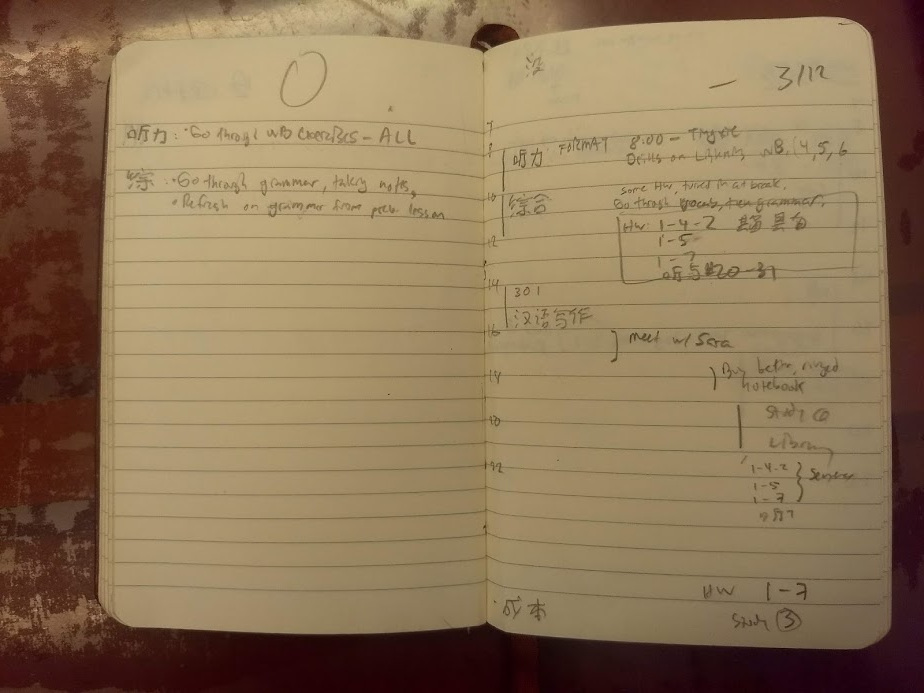 听力: · Go through WB exercises - ALL
综: · Go through grammar, taking notes,
· Refresh on grammar from prev. lesson
没
— 3/12
7
8
听力: FORMAT 8:00 -
Drills on Listening WB. 4, 5, 6
10
综合
Some HW, turned in at break.
Go through vocab, then grammar,
HW: 1-4-2
1-5
1-7
听写 20-37
12
14
301
汉语写作
16
meet w/ Sara
Buy better, ringed
notebook
Study @
Library
1-4-2
1-5
1-7
HW 1-7
Study 3